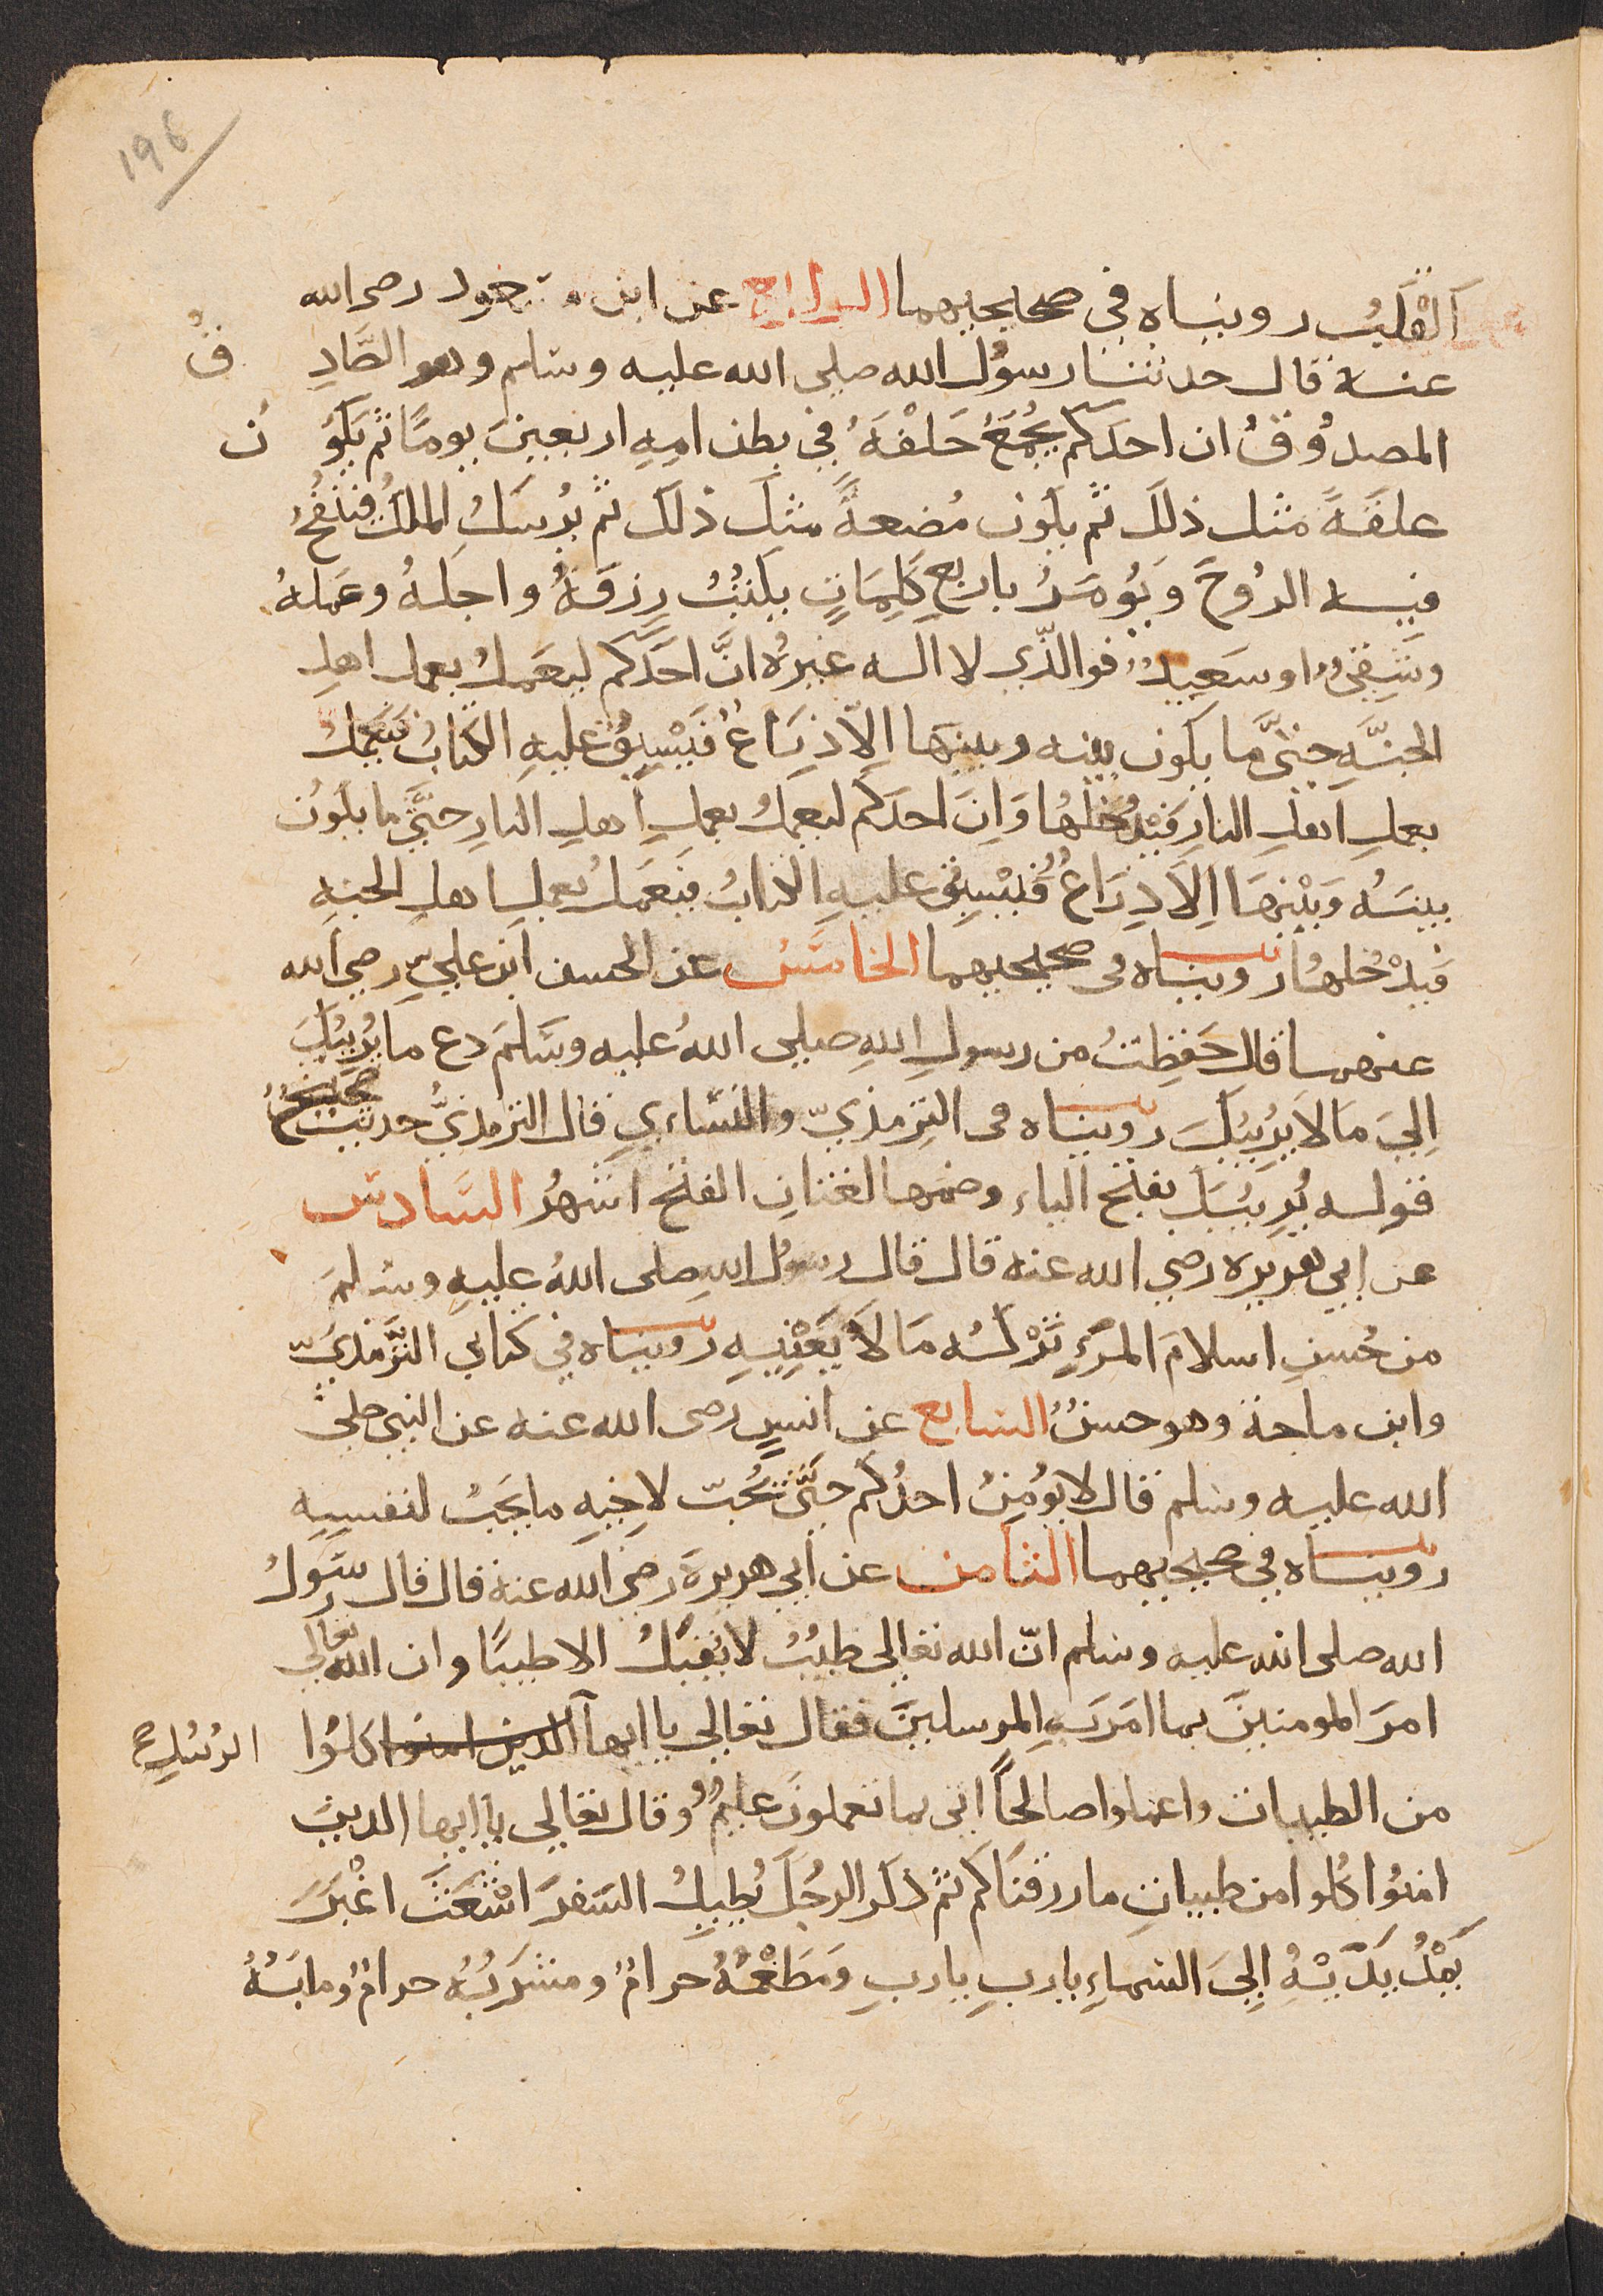 196
اَلْقَلْبُ رويناه في صحيحيهما الرابع عن ابن مسعود رضى الله
عنه قال حدثنا رسوُل الله صلي الله عليه وسلم وهو الصَّادِ قُ
المصدُوقُ ان احدَكم يُجْمَعُ خَلْقَهُ في بطن امِهِ اربعينَ يومًا ثم يَكوُ ن
علقَةً مثل ذلك ثم يكون مُضغةً مثل ذلك ثم يُرْسَلُ الملَكُ فينفُخُ
فيه الروُحَ وَيُومَرُ باربعِ كَلِمَاتٍ بكَتْبُ رِزقَهُ واجلهُ وعَملهُ
وشَقِيٌ او سَعيدٌ فوالذّي لا اله غيرهُ انَّ احدَكم ليعَملُ بعمل اهلِ
الجنَّهِ حتىَّ ما يكون بينه وبينها اِلاّ ذِرَاعٌ فَيَسْبِقُ عليهِ الكتابُ فَيَعْمَلُ
بعملِ اهلِ النارِ فَيَدْخُلها وَانَ احدَكم ليعملُ بعملِ اهلِ النارِ حتىَّ ما يكوُن
بينَهُ وَبَيْنها اِلاَ ذِرَاعٌ فَيَسْبِقُ عليهِ الكتابُ فيَعَملُ بعملِ اهلِ الجنهِ
فيَدْخُلهُا رويناه فى صحيحيهما الخامسُ عن الحسن ابن عليّ رضي الله
عنهما قال حَفِظتُ من رسولِ اللهِ صلي اللهُ عليه وسَلمَ دع ما يُرِيبُكَ
اِليَ مَا لاَ يُرِيبُكَ رويناه فى التِرمذيّ والنسَاءي قال الترمذيُّ حديث صحيحٌ
قوله يُرِيبُكَ بفتح الياء وضمها لغتانِ الفتح اشهرُ السَّادس
عن ابي هريره رضي الله عنه قال قال رسوُل اللهِ صلى اللهُ عليهِ وسلمَ
من حُسنِ اسلامَ المرَءِ تَرْكُه مَا لاَ يَعْنِيهِ رويناه في كتابي التّرمذيّ
وابن ماجة وهو حسنٌ السابع عن انسٍ رضى الله عنه عن النبي صلىَ
الله عليه وسلم قال لا يوُمِنُ احدُكم حتىَّ يُحبّ لاخِيهِ ما يحَبُ لنفسِهِ
رويناه في صحيحيهما الثامن عن ابي هريرةَ رضي الله عنهُ قال قال رسَوُل
الله صلى الله عليه وسلم انّ الله تعالي طيبٌ لا يَقبَلُ الا طيبًا وان الله تعالي
امرَ المومنينَ بما امَرَ بهِ المرسلينَ فقال تعالي يا ايها الذين امنوا كلوُا الرسُلِ صح
من الطيبات واعملوا صالحًا اني بما تعملونَ عليمٌ وقال تعالي يا ايها الدينَ
امنوُا كلوا من طيباتِ ما رزقناكم ثم ذكَر الرجُلَ يُطيلُ السَفرَ اشْعَثَ اغْبَرَ
يَمُدُ يَدَيْهِ اِليَ السَماءِ يا ربِ يا ربِ ومَطعَمُهُ حرامٌ ومشرَبُهُ حرامٌ وملبَسُهُ